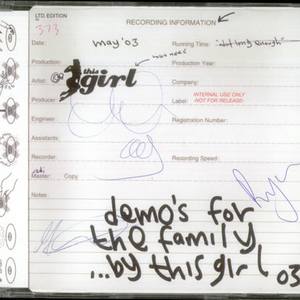 LTD. EDITION
373
RECORDING INFORMATION
Date: may '03
Running Time: "not long enough"
Production:
Production Year:
Artist: this girl
Company:
Producer
Label: INTERNAL USE ONLY
NOT FOR RELEASE:
Engineer
Registration Number:
Assistants:
Recorder:
Recording Speed:
Master: Copy
Notes:
demo's for
the family
...by this girl
03